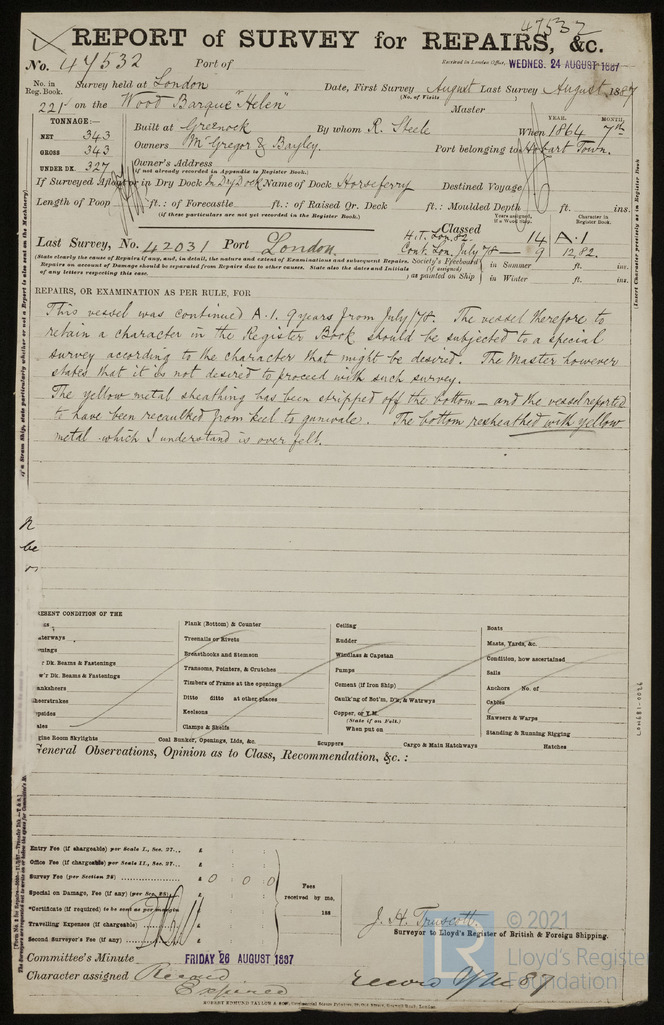 47532
REPORT of SURVEY for REPAIRS, &c.
No. 47532 Port of
Received in London Office, WEDNES. 24 AUGUST 1887
No. in Reg. Book. Survey held at London Date, First Survey August Last Survey August 1887
(No. of Visits) Master
221 on the Wood Barque "Helen"
TONNAGE:—
NET 343
GROSS 343
UNDER DK. 327
Built at Greenock By whom R. Steele When 1864 YEAR. MONTH. 7th
Owners McGregor & Bayley. Port belonging to Hobart Town.
Owner's Address
(if not already recorded in Appendix to Register Book.)
If Surveyed Afloat or in Dry Dock In Dry Dock Name of Dock Horseferry Destined Voyage
Length of Poop ft.: of Forecastle ft.: of Raised Qr. Deck ft.: Moulded Depth ft. ins.
(if these particulars are not yet recorded in the Register Book.)
Years assigned, if a Wood Ship.
Character in Register Book.
Last Survey, No. 42031 Port London.
Classed
H.T. Lon. 82. 14 A.1
Cont. Lon. July 78 — 9 12,82.
(State clearly the cause of Repairs if any, and, in detail, the nature and extent of Examinations and subsequent Repairs.
Repairs on account of Damage should be separated from Repairs due to other causes. State also the dates and Initials
of any letters respecting this case.
Society's Freeboard (if assigned) as painted on Ship in Summer ft. ins.
in Winter ft. ins.
REPAIRS, OR EXAMINATION AS PER RULE, FOR
This vessel was continued A.1. 9 years from July /78. The vessel therefore to
retain a character in the Register Book should be subjected to a special
survey according to the character that might be desired. The Master however
states that it is not desired to proceed with such survey.
The yellow metal sheathing has been stripped off the bottom — and the vessel reported
to have been recaulked from keel to gunwale. The bottom resheathed with yellow
metal which I understand is over felt.
PRESENT CONDITION OF THE
Plank (Bottom) & Counter
Treenails or Rivets
Breasthooks and Stemson
Transoms, Pointers, & Crutches
Timbers of Frame at the openings
Ditto ditto at other places
Keelsons
Clamps & Shelfs
Ceiling
Rudder
Windlass & Capstan
Pumps
Cement (if Iron Ship)
Caulk'ng of Bot'm, D'k, & Watrwys
Copper, or Y.M.
(State if on Felt.)
When put on
Boats
Masts, Yards, &c.
Condition, how ascertained
Sails
Anchors No. of
Cables
Hawsers & Warps
Standing & Running Rigging
Dk. Beams & Fastenings
Dk. Beams & Fastenings
Engine Room Skylights Coal Bunker, Openings, Lids, &c. Scuppers Cargo & Main Hatchways Hatches
General Observations, Opinion as to Class, Recommendation, &c.:
Entry Fee (if chargeable) per Scale I., Sec. 27... £
Office Fee (if chargeable) per Scale II., Sec. 27... £
Survey Fee (per Section 28) £ 0 0 0
Special or Damage, Fee (if any) (per Sec. 28) £
*Certificate (if required) to be sent as per margin
Travelling Expenses (if chargeable) £
Second Surveyor's Fee (if any) £
Fees received by me, 188
Surveyor to Lloyd's Register of British & Foreign Shipping.
Committee's Minute FRIDAY 26 AUGUST 1887
Character assigned Record
Expired
LR
© 2021
Lloyd's Register
Foundation